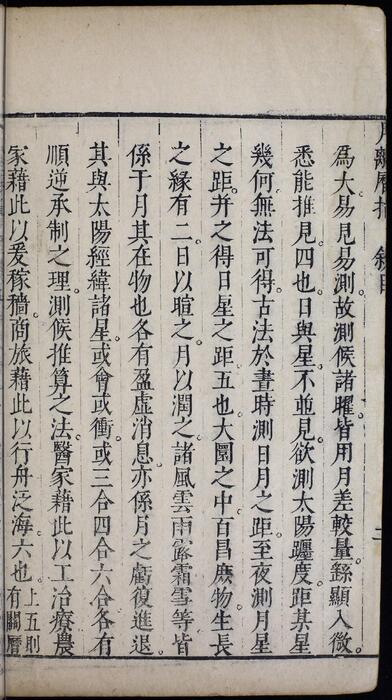 月離曆指 叙目 二
為大易見易測故測候諸曜皆用月差較量繇顯入微
悉能推見四也日與星不並見欲測太陽躔度距某星
幾何無法可得古法於晝時測日月之距至夜測月星
之距并之得日星之距五也大圜之中百昌庶物生長
之緣有二日以暄之月以潤之諸風雲雨露霜雪等皆
係于月其在物也各有盈虛消息亦係月之虧復進退
其與太陽經緯諸星或會或衝或三合四合六合各有
順逆承制之理測候推算之法醫家藉此以工治療農
家藉此以爰稼穡商旅藉此以行舟泛海六也上五則
有關曆